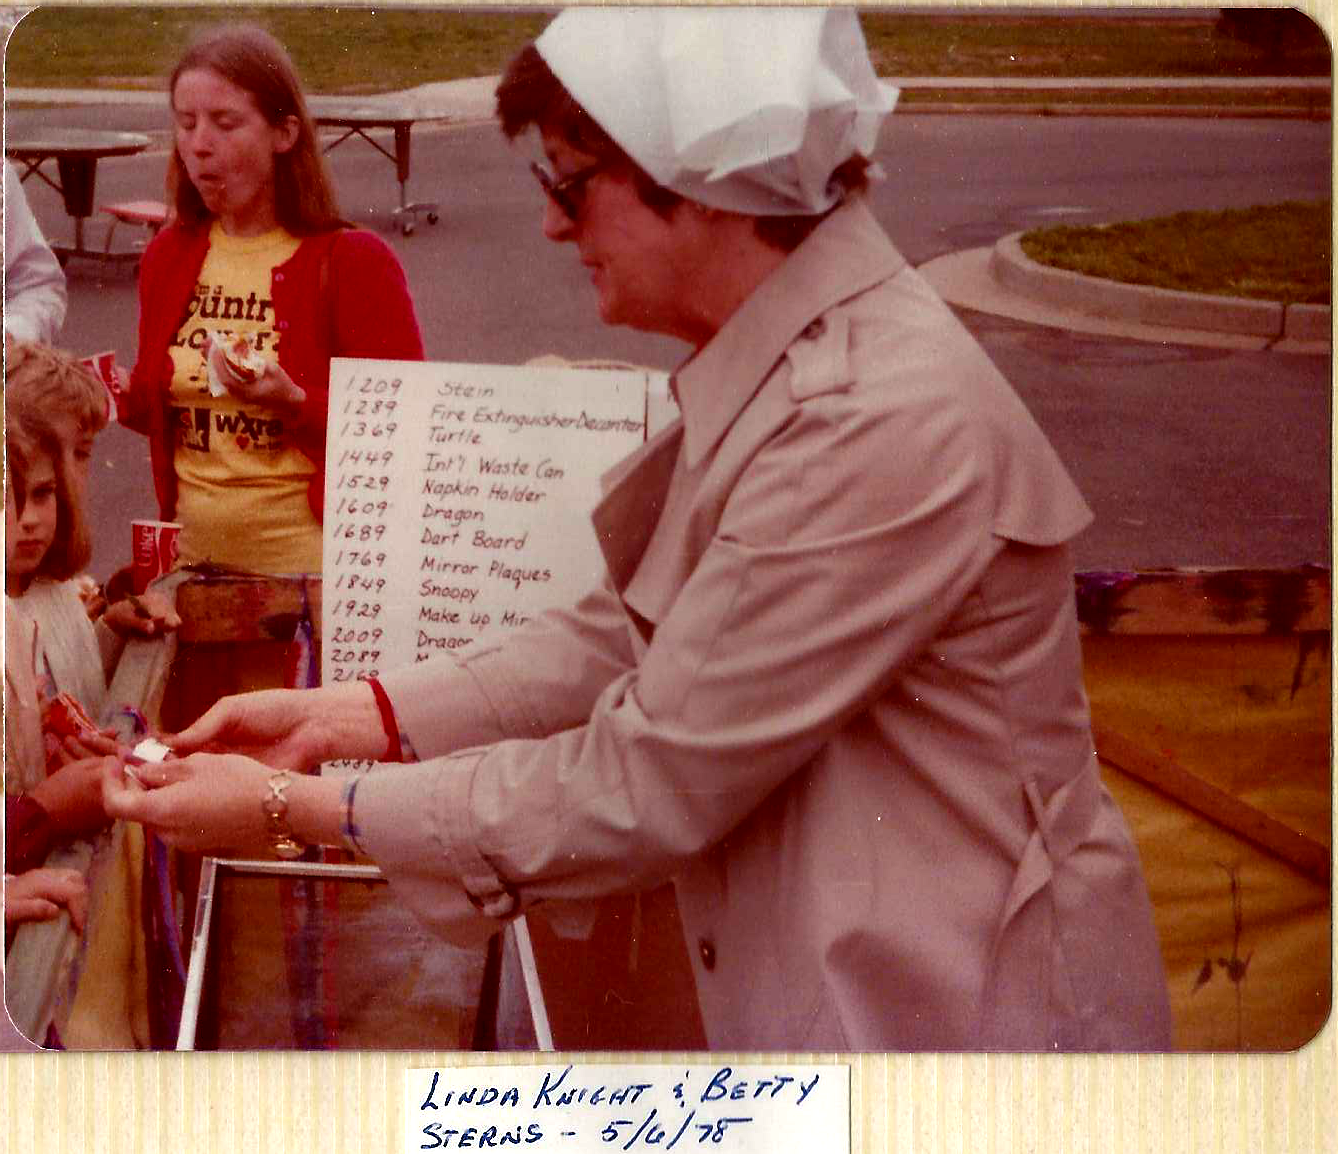 I'm a
Country
Lover
wxra
Coke
1209 Stein
1289 Fire Extinguisher Decanter
1369 Turtle
1449 Int'l Waste Can
1529 Napkin Holder
1609 Dragon
1689 Dart Board
1769 Mirror Plaques
1849 Snoopy
1929 Make up Mir
2009 Dragon
2089 M
2169
2489
LINDA KNIGHT & BETTY
STERNS - 5/6/78